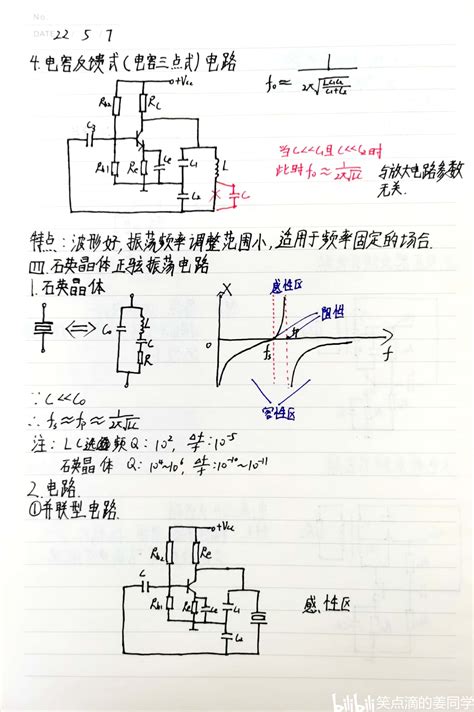 No.
DATE 22 5 7
4.电容反馈式(电容三点式)电路
+Vcc
Rb2
C3
Rb1
Re
Ce
C1
C2
L
C
当C<<C1且C<<C2时
此时f₀≈1/(2π√LC)
与放大电路参数
无关.
特点:波形好,振荡频率调整范围小,适用于频率固定的场合.
四.石英晶体正弦振荡电路
1.石英晶体
C₀
L
C
R
X
感性区
阻性
0
fs
fp
f
容性区
∵C<<C₀
∴fs≈fp≈1/(2π√LC)
注:LC选频Q:10²,Δf/f:10⁻⁵
石英晶体 Q:10⁴~10⁶,Δf/f:10⁻¹⁰~10⁻¹¹
2.电路.
①并联型电路.
+Vcc
Rb2
Rc
C
Rb1
Re
Ce
C1
C2
感性区
bilibili 笑点滴的姜同学